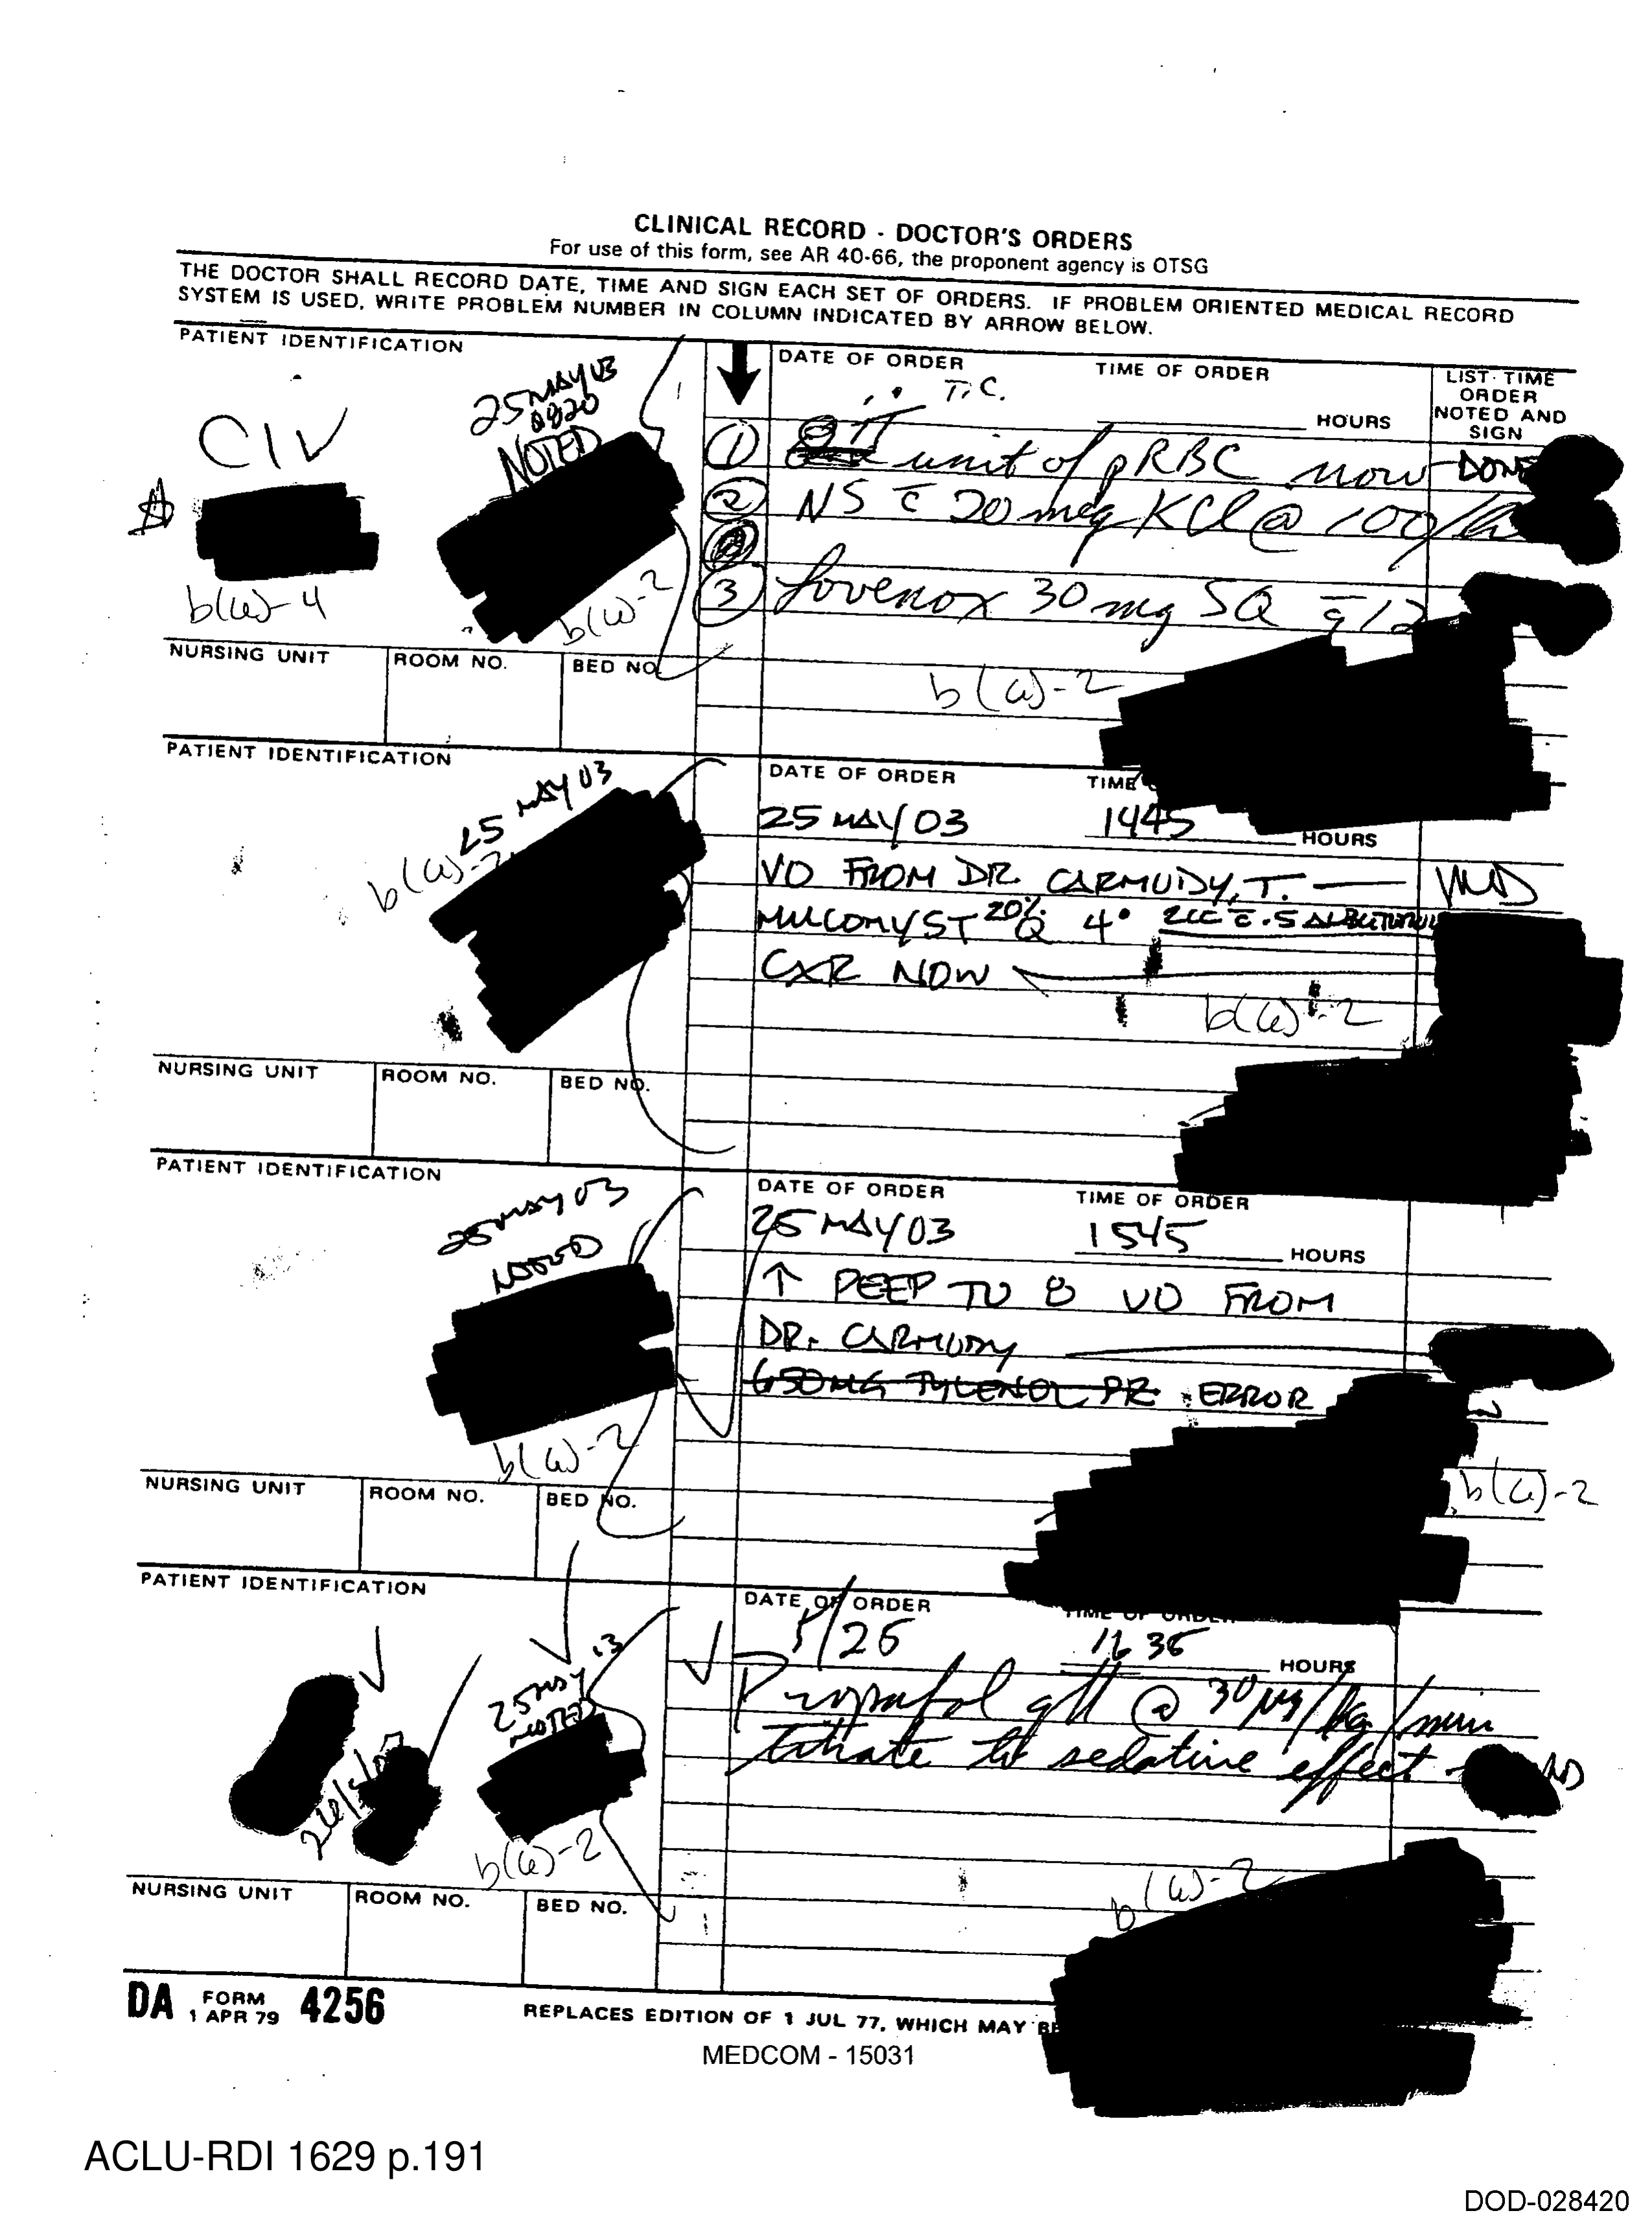 CLINICAL RECORD - DOCTOR'S ORDERS
For use of this form, see AR 40-66, the proponent agency is OTSG
THE DOCTOR SHALL RECORD DATE, TIME AND SIGN EACH SET OF ORDERS. IF PROBLEM ORIENTED MEDICAL RECORD
SYSTEM IS USED, WRITE PROBLEM NUMBER IN COLUMN INDICATED BY ARROW BELOW.
PATIENT IDENTIFICATION
DATE OF ORDER
TIME OF ORDER
HOURS
LIST TIME
ORDER
NOTED AND
SIGN
T.C.
CIV
25 MAY 03
0820
NOTED
b(6)-4
b(6)-2
1 unit of pRBC now DONE
2 NS c̄ 20 meq KCl @ 100/h
3 Lovenox 30 mg SQ q12
b(6)-2
NURSING UNIT
ROOM NO.
BED NO.
PATIENT IDENTIFICATION
25 MAY 03
b(6)-2
DATE OF ORDER
TIME
25 MAY 03
1445
HOURS
VO FROM DR. CARMUDY, T.
MUCOMYST 20% Q 4° 2CC c̄ .5 ALBUTEROL
CXR NOW
b(6)-2
NURSING UNIT
ROOM NO.
BED NO.
PATIENT IDENTIFICATION
25 MAY 03
NOTED
b(6)-2
DATE OF ORDER
TIME OF ORDER
25 MAY 03
1545
HOURS
↑ PEEP TO 8 VO FROM
DR. CARMUDY
650 MG TYLENOL PR ERROR
b(6)-2
NURSING UNIT
ROOM NO.
BED NO.
PATIENT IDENTIFICATION
25 MAY 03
NOTED
b(6)-2
DATE OF ORDER
TIME OF ORDER
5/25
1635
HOURS
Propofol gtt @ 30 µg/kg/min
titrate to sedative effect
b(6)-2
NURSING UNIT
ROOM NO.
BED NO.
DA FORM 4256
1 APR 79
REPLACES EDITION OF 1 JUL 77, WHICH MAY BE
MEDCOM - 15031
ACLU-RDI 1629 p.191
DOD-028420